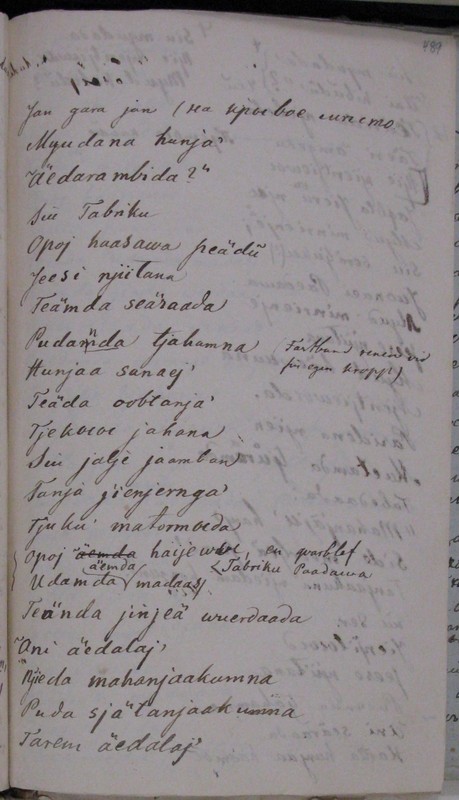 489
Jan gara jan (на кривое мѣсто
Myudana hunja'
Äedarambida?"
Siu Tabriku
Opoj haasawa peädü
Jeesi njiitana
Teämda seäraada
Pudamda tjahamna (Tartbund rened vi
sin egen kropp)
Hunjaa sanaej'
Teäda oobtanja'
Tjekuwe jahana
Siu jalje jaamban
Tanja jienjernga'
Tjuku' matormoeda
Opoj äemda haijewe, en qwarblef
äemda Tabriku Paadawa
Udamda (madaas)
Teända jinjeä wuerdaada
"Ani äedalaj'
"Njeda mahanjaakumna
Puda sjätanjaakumna
Tarem äedalaj'